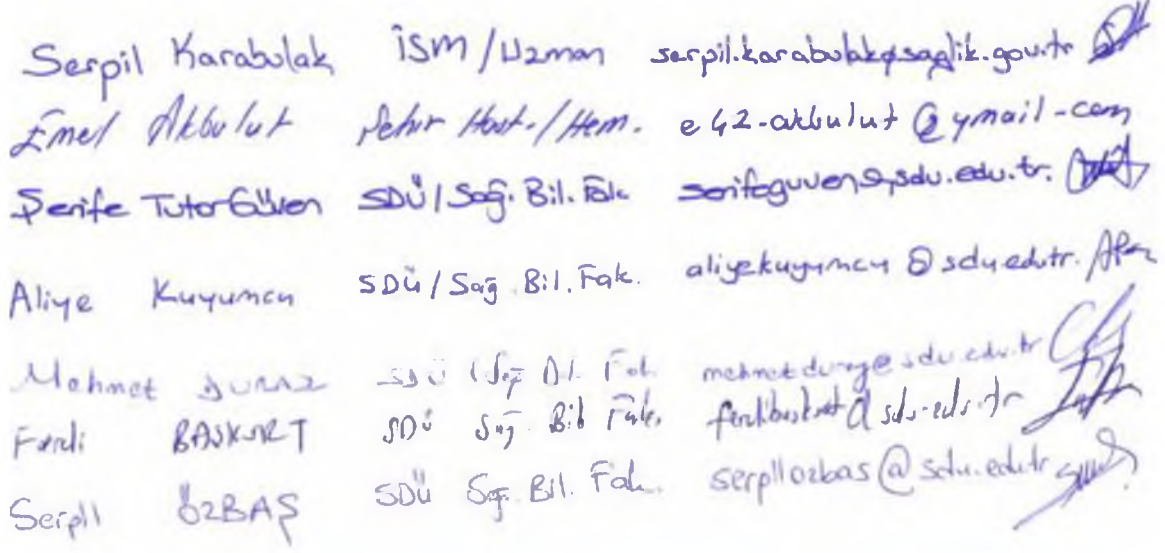 Serpil Karabulak İSM/Uzman serpil.karabulak@saglik.gov.tr
Emel Akbulut Şehir Hast./Hem. e42-akbulut@ymail-com
Şerife Tutar Güven SDÜ/Sağ. Bil. Fak. serifeguven@sdu.edu.tr.
Aliye Kuyumcu SDÜ/Sağ. Bil. Fak. aliyekuyumcu@sdu.edu.tr.
Mehmet SDÜ Fak.
Ferdi BAŞKURT SDÜ Sağ. Bil Fak.
Serpil ÖZBAŞ SDÜ Sağ. Bil. Fak. serpilozbas@sdu.edu.tr